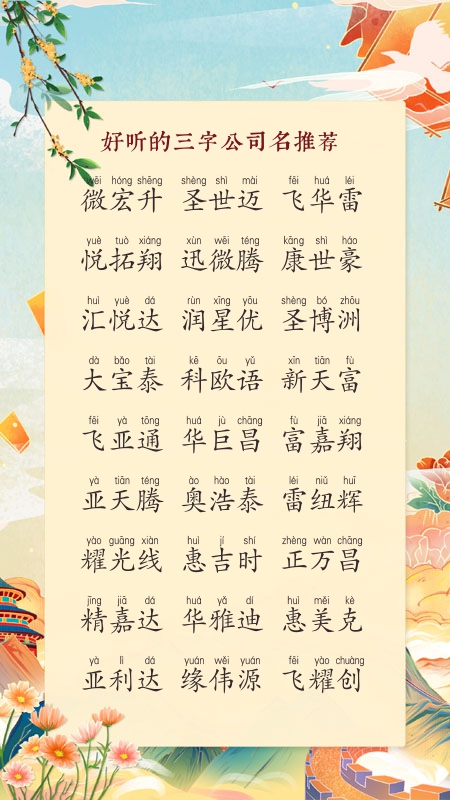 好听的三字公司名推荐
wēi hóng shēng shèng shì mài fēi huá léi
微宏升 圣世迈 飞华雷
yuè tuò xiáng xùn wēi téng kāng shì háo
悦拓翔 迅微腾 康世豪
huì yuè dá rùn xīng yōu shèng bó zhōu
汇悦达 润星优 圣博洲
dà bǎo tài kē ōu yǔ xīn tiān fù
大宝泰 科欧语 新天富
fēi yà tōng huá jù chāng fù jiā xiáng
飞亚通 华巨昌 富嘉翔
yà tiān téng ào hào tài léi niǔ huī
亚天腾 奥浩泰 雷纽辉
yào guāng xiàn huì jí shí zhèng wàn chāng
耀光线 惠吉时 正万昌
jīng jiā dá huá yǎ dí huì měi kè
精嘉达 华雅迪 惠美克
yà lì dá yuán wěi yuán fēi yào chuàng
亚利达 缘伟源 飞耀创